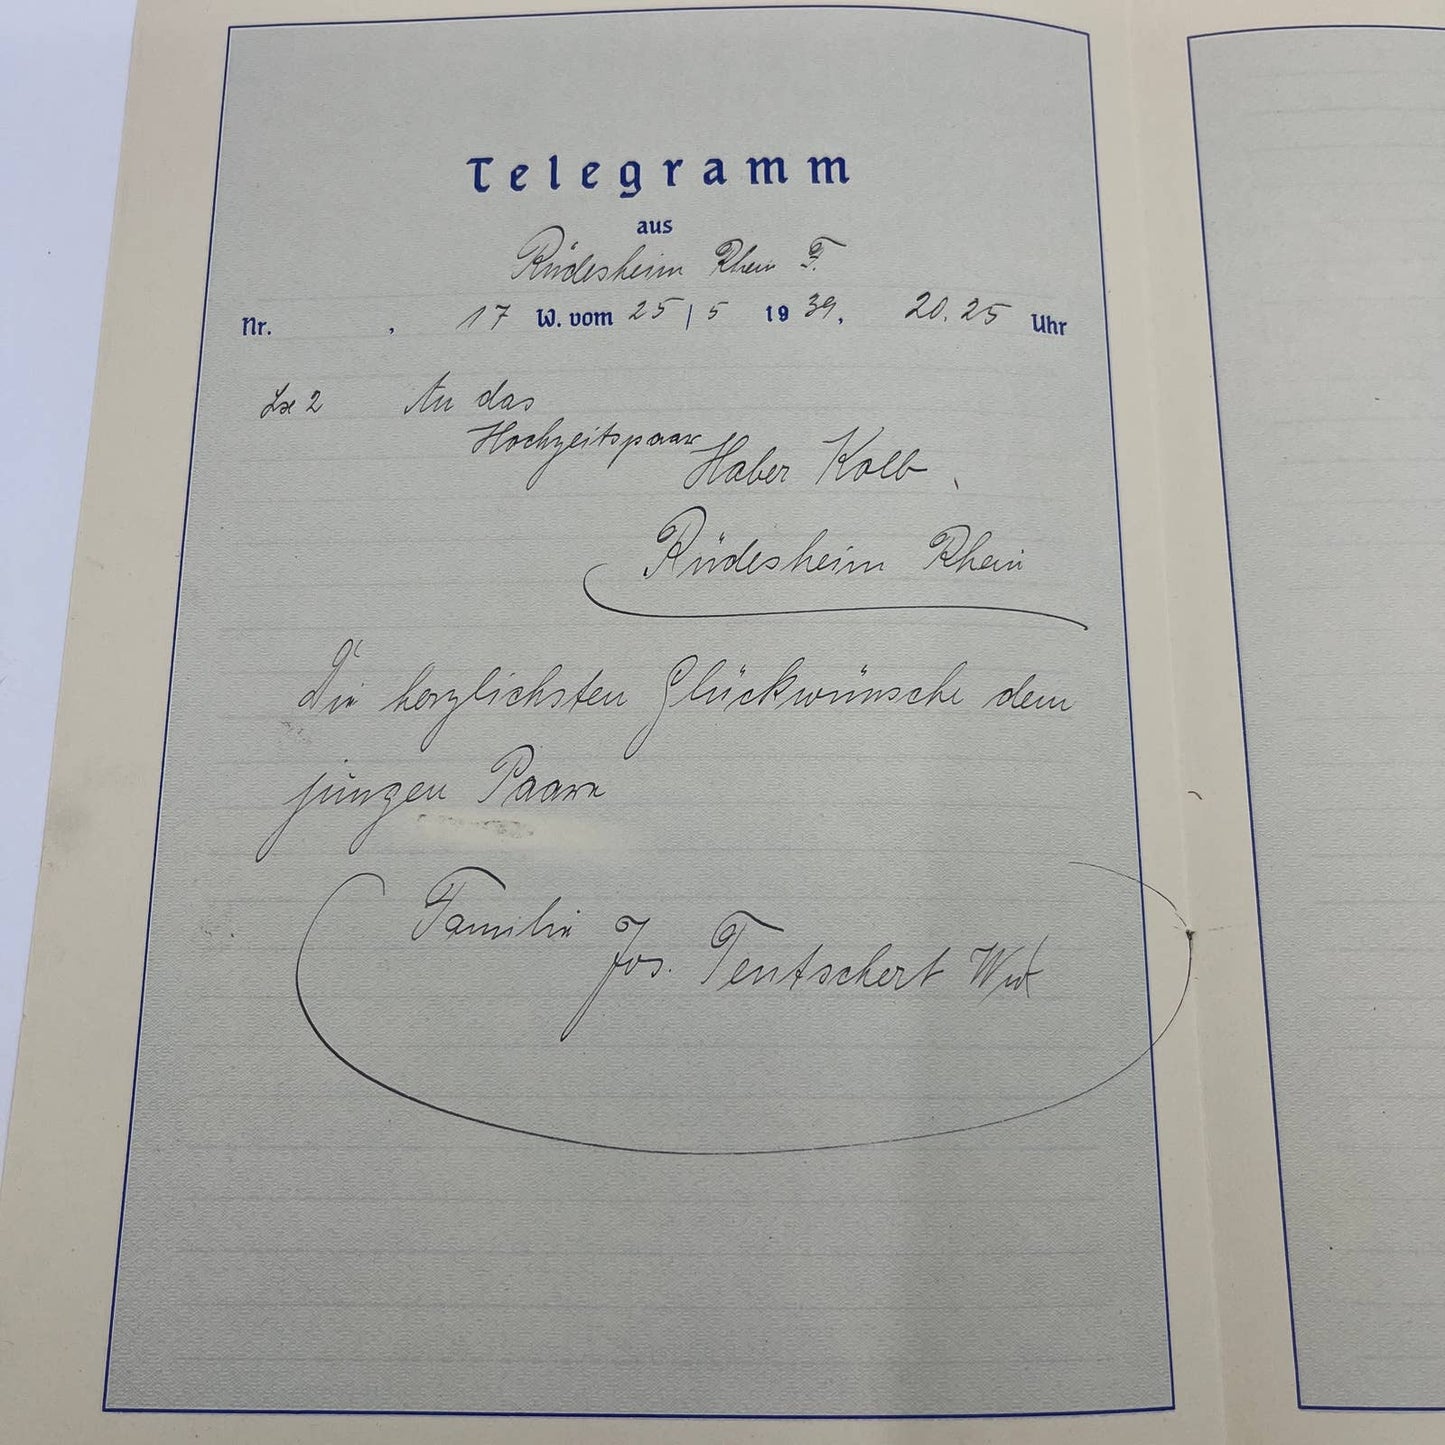 Telegramm
aus
Rüdesheim Rhein F.
Nr. , 17 W. vom 25/5 1939, 20.25 Uhr
Lx 2 An das
Hochzeitspaar
Haber Kolb
Rüdesheim Rhein
Die herzlichsten Glückwünsche dem
jungen Paare
Familie
Jos. Tentschert Wwe